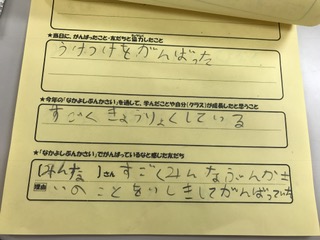 ★当日に、がんばったこと・友だちと協力したこと
うけつけをがんばった
★今年の「なかよしぶんかさい」を通して、学んだことや自分(クラス)が成長したと思うこと
すごくきょうりょくしている
★「なかよしぶんかさい」でがんばっているなと感じた友だち
【みんな】さん すごくみんなぶんかさ
いのことをいしきしてがんばっていた
理由